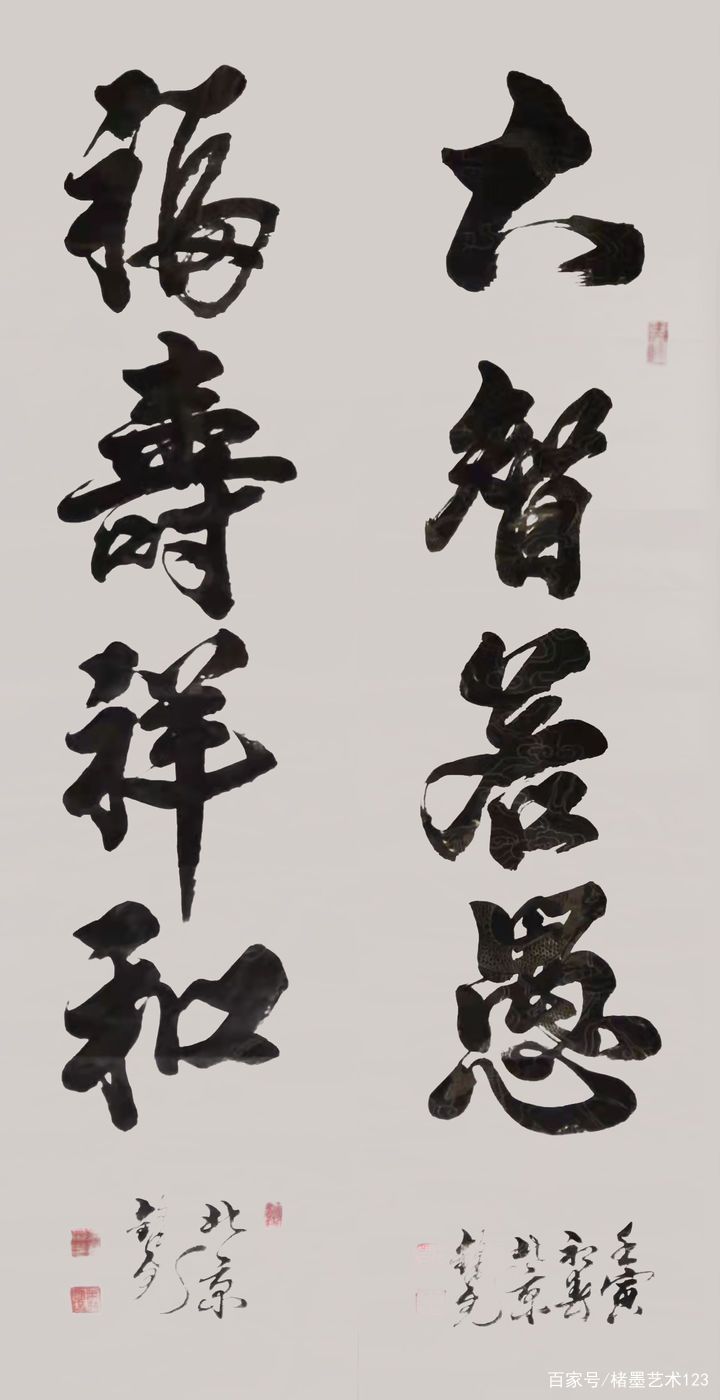 大智若愚
壬寅
初春
北京
福壽祥和
北京
百家号/楮墨艺术123